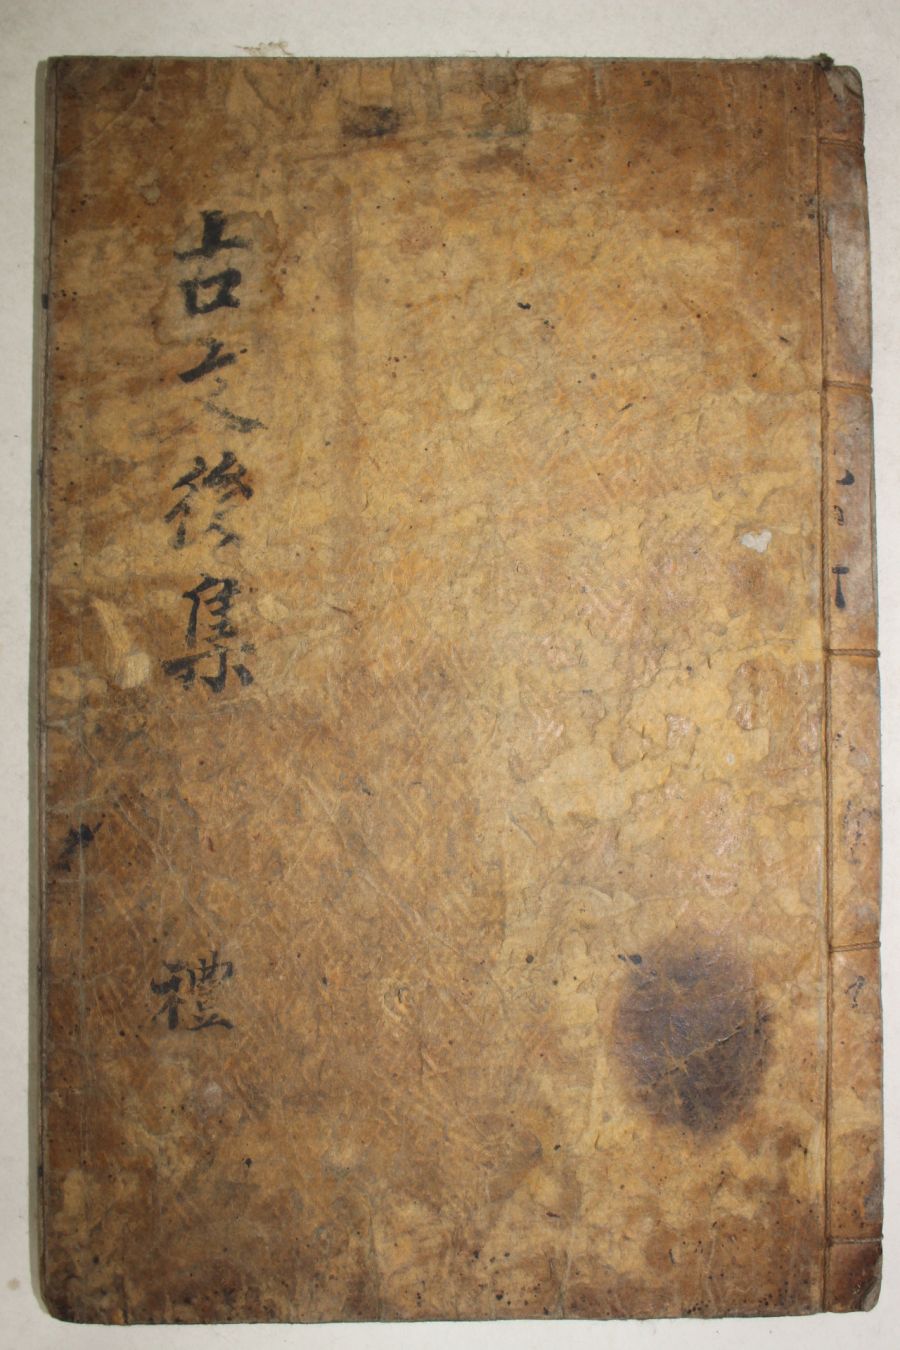 古文後集
禮